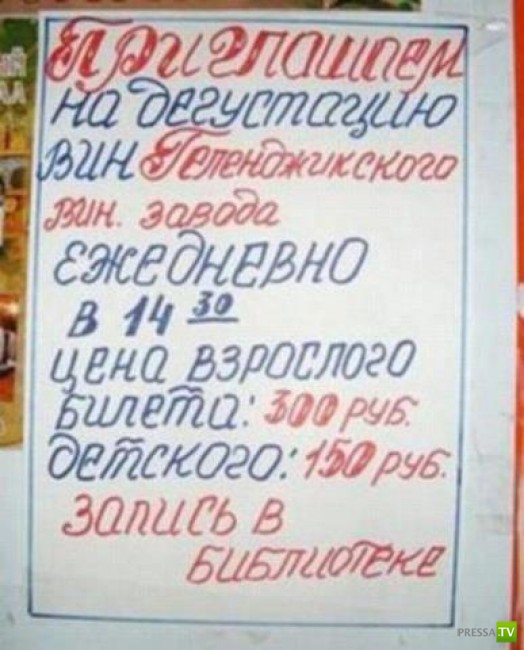 Приглашаем
на дегустацию
вин Геленджикского
вин. завода
ежедневно
в 14 30
цена взрослого
билета: 300 руб.
детского: 150 руб.
запись в
библиотеке
PRESSA.TV